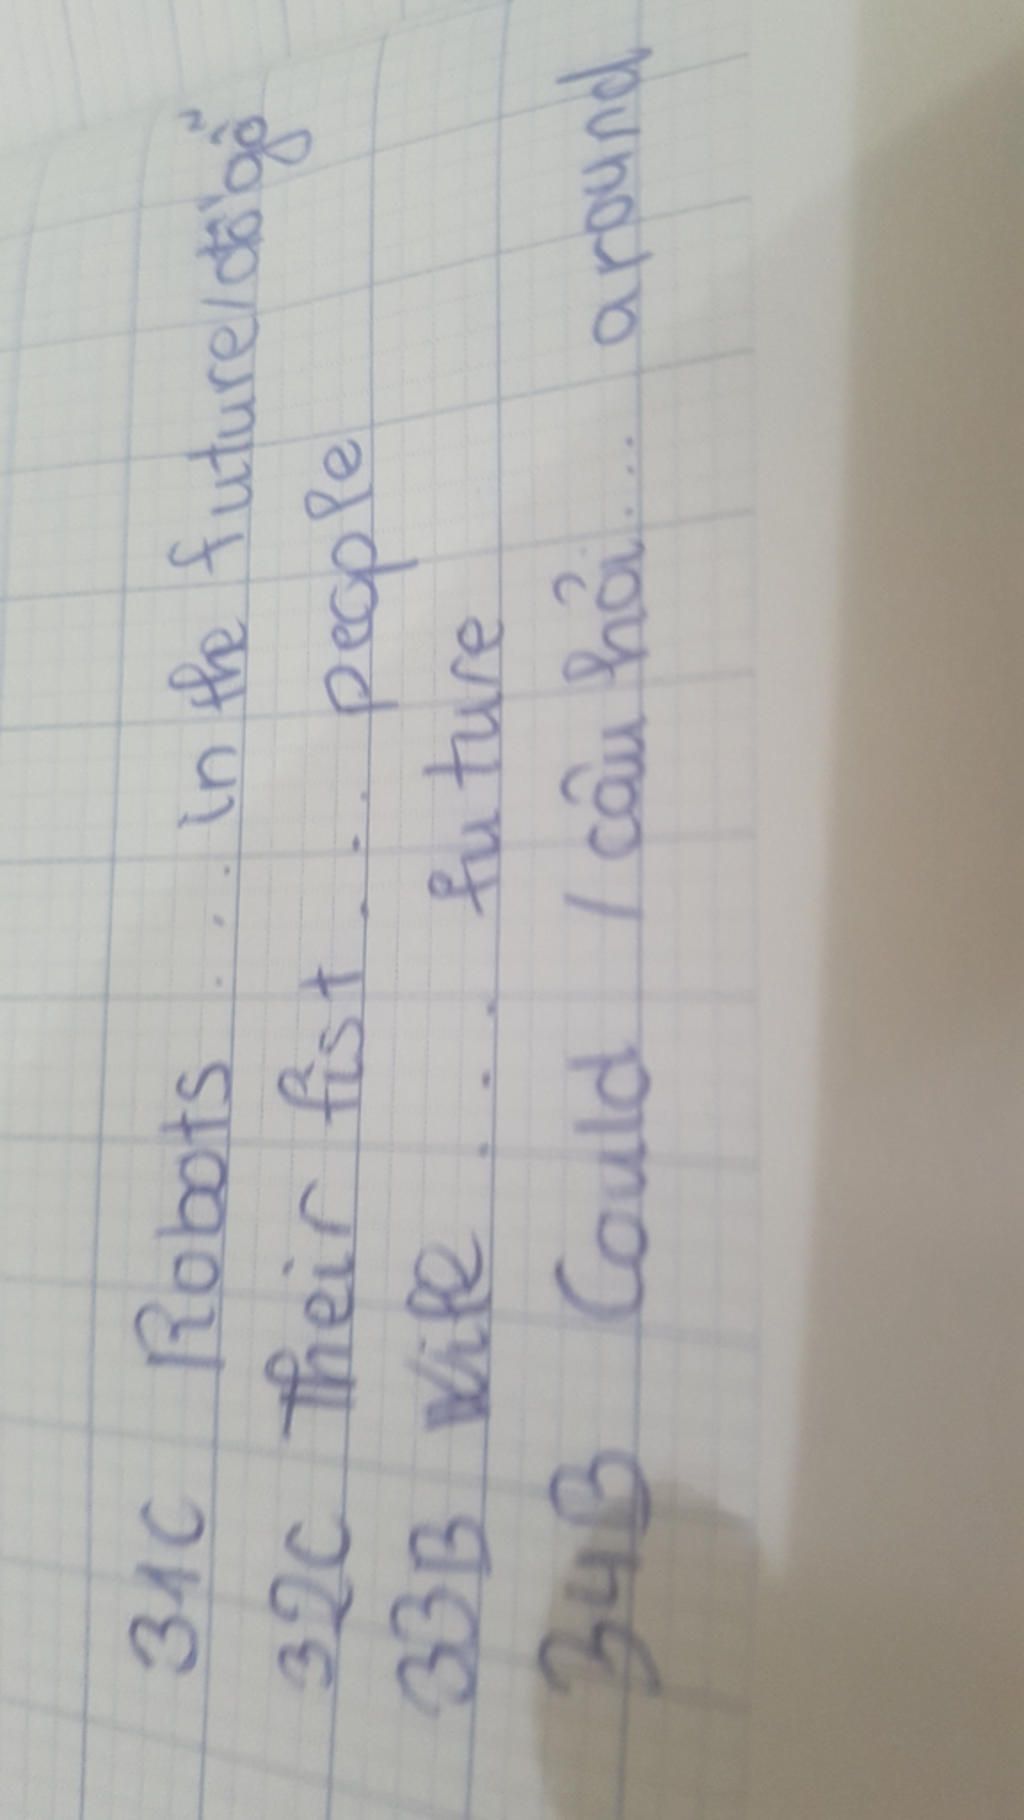 31C Robots ... in the future/
32C Their fist ... people
33B ... future
34B Could / câu hỏi ... around